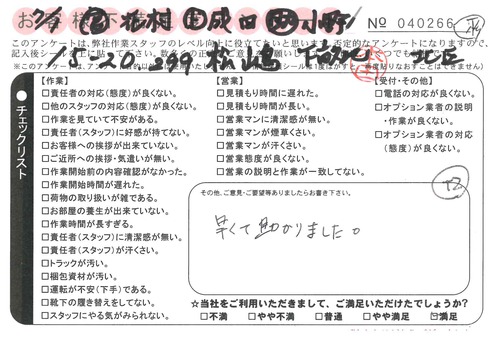 No 040266
このアンケートは、弊社作業スタッフのレベル向上に役立てたいと思います。否定的なアンケートになりますので、
【作業】
□責任者の対応(態度)が良くない。
□他のスタッフの対応(態度)が良くない。
□作業を見ていて不安がある。
□責任者(スタッフ)に好感が持てない。
□お客様への挨拶が出来ていない。
□ご近所への挨拶・気遣いが無い。
□作業開始前の内容確認がなかった。
□作業開始時間が遅れた。
□荷物の取り扱いが雑である。
□お部屋の養生が出来ていない。
□作業時間が長すぎる。
□責任者(スタッフ)に清潔感が無い。
□責任者(スタッフ)が汗くさい。
□トラックが汚い。
□梱包資材が汚い。
□運転が不安(下手)である。
□靴下の履き替えをしてない。
□スタッフにやる気がみられない。
チェックリスト
【営業】
□見積もり時間に遅れた。
□見積もり時間が長い。
□営業マンに清潔感が無い。
□営業マンが煙草くさい。
□営業マンが汗くさい。
□営業態度が良くない。
□営業の説明と作業が一致してない。
【受付・その他】
□電話の対応が良くない。
□オプション業者の説明
・作業が良くない。
□オプション業者の対応
(態度)が良くない。
その他、ご意見・ご要望等ありましたらお書き下さい。
早くて助かりました。
☆当社をご利用いただきまして、ご満足いただけたでしょうか?
□不満 □やや不満 □普通 □やや満足 ☑満足